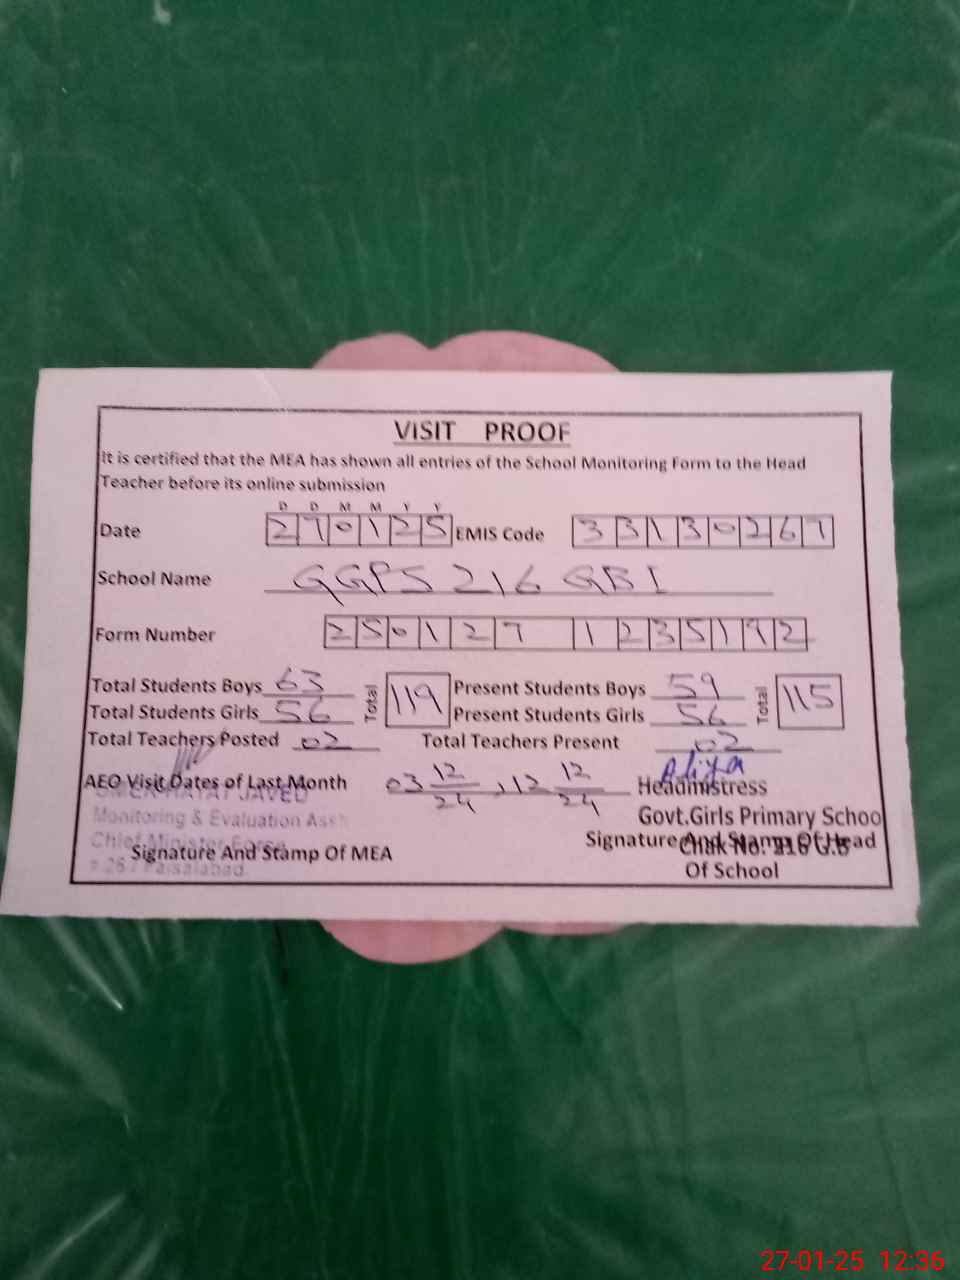 VISIT PROOF
It is certified that the MEA has shown all entries of the School Monitoring Form to the Head
Teacher before its online submission
D D M M Y Y
Date 270125 EMIS Code 33130267
School Name GGPS 216 GBI
Form Number 250127 1235192
Total Students Boys 63 Total 119 Present Students Boys 59 Total 115
Total Students Girls 56 Present Students Girls 56
Total Teachers Posted 02 Total Teachers Present 02
AEO Visit Dates of Last Month 03 12/24, 12 12/24 Headmistress
HAYAT JAVED
Govt.Girls Primary Schoo
Monitoring & Evaluation Asst
Chief Minister Force
Chak No. 216 G.B
Signature And Stamp Of MEA Signature And Stamp Of Head
Of School
# 267 Faisalabad.
27-01-25 12:36